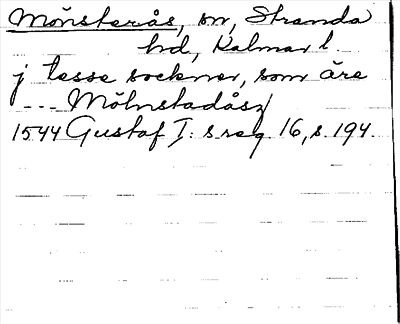 Mönsterås, sn, Stranda
hd, Kalmar l.
j tesse sockner, som äre
--- Mölnstadåsz
1544 Gustaf I:s reg 16, s. 194.